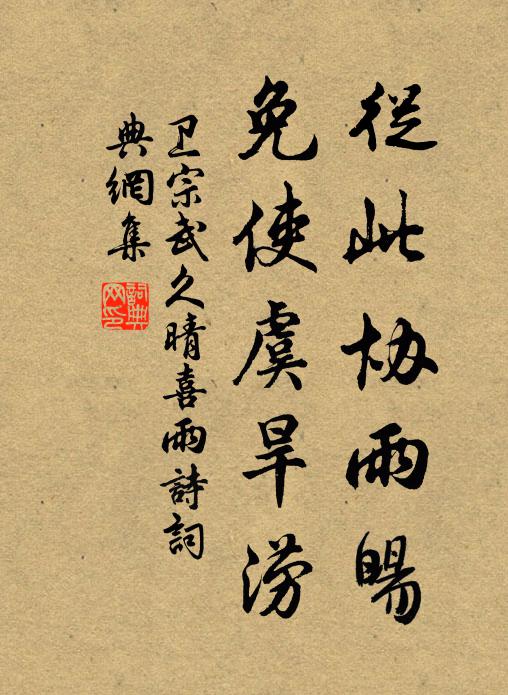 從此協雨暘
免使虞旱澇
卫宗武久晴喜雨詩詞
典網集
詞典
网印